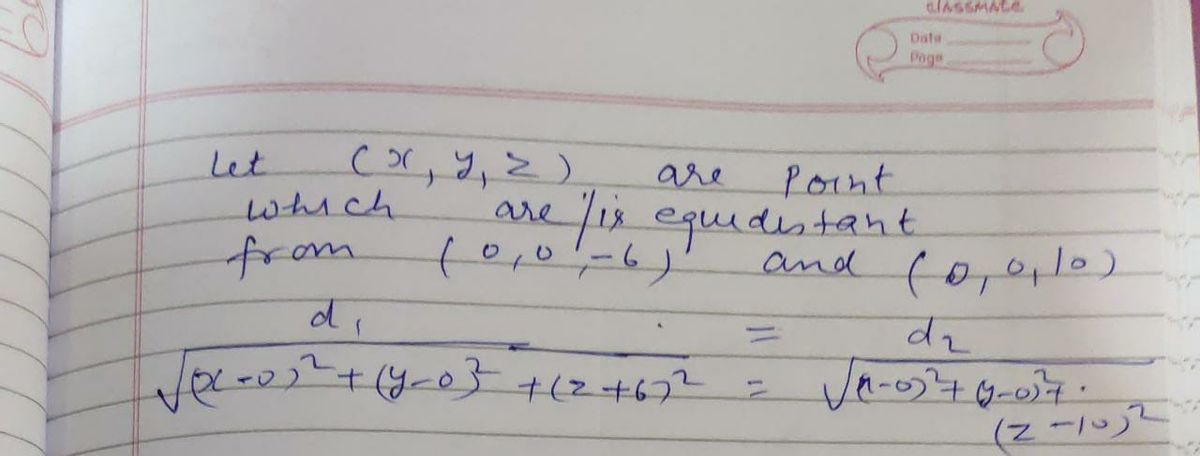 classmate
Date
Page
Let (x, y, z) are Point
which are/is equidistant
from (0,0,-6) and (0,0,10)
d₁ = d₂
√(x-0)²+(y-0)²+(z+6)² = √(x-0)²+(y-0)²+
(z-10)²